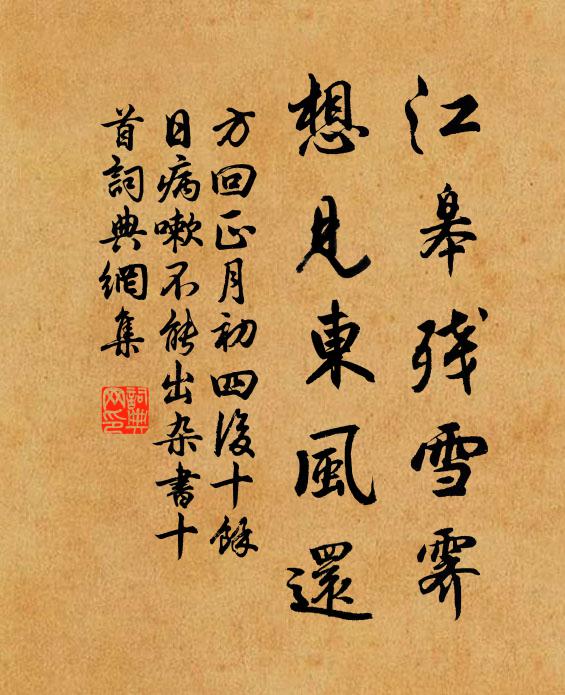 江皋残雪霁
想見東風還
方回正月初四後十餘
日病嗽不能出杂書十
首詞典網集
詞典
网印